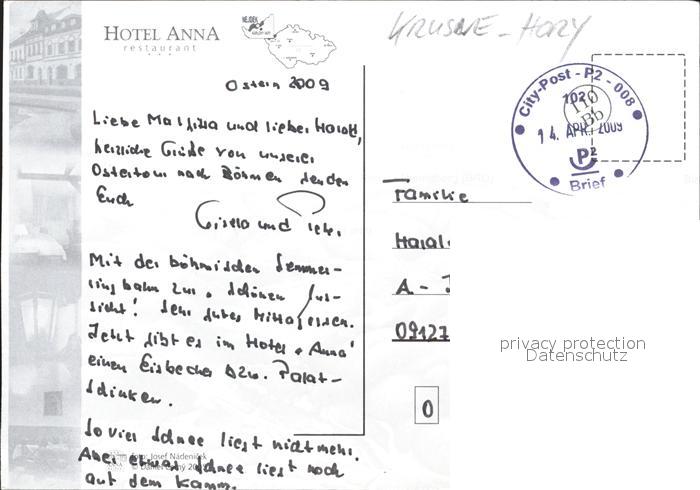 HOTEL ANNA
restaurant
* * *
NEJDEK
KRUSNE-HORY
Ostern 2009
City-Post - P2 - 008
102
110
Bb
14. APR. 2009
P2
Brief
Liebe und lieber Harald,
herzliche Grüße von unserer
Ostertour nach Böhmen senden
Euch
Gisela und
Mit der böhmischen Semmer-
ingbahn zur "Schönen Aus-
sicht! Sehr gutes Mittagessen.
Jetzt gibt es im Hotel "Anna"
einen Eisbecher bzw. Palat-
schinken.
So viel Schnee liegt nicht mehr.
Aber etwas Schnee liegt noch
auf dem Kamm.
foto: Josef Nádeníček
Familie
Haral
A -
09127
0
privacy protection
Datenschutz